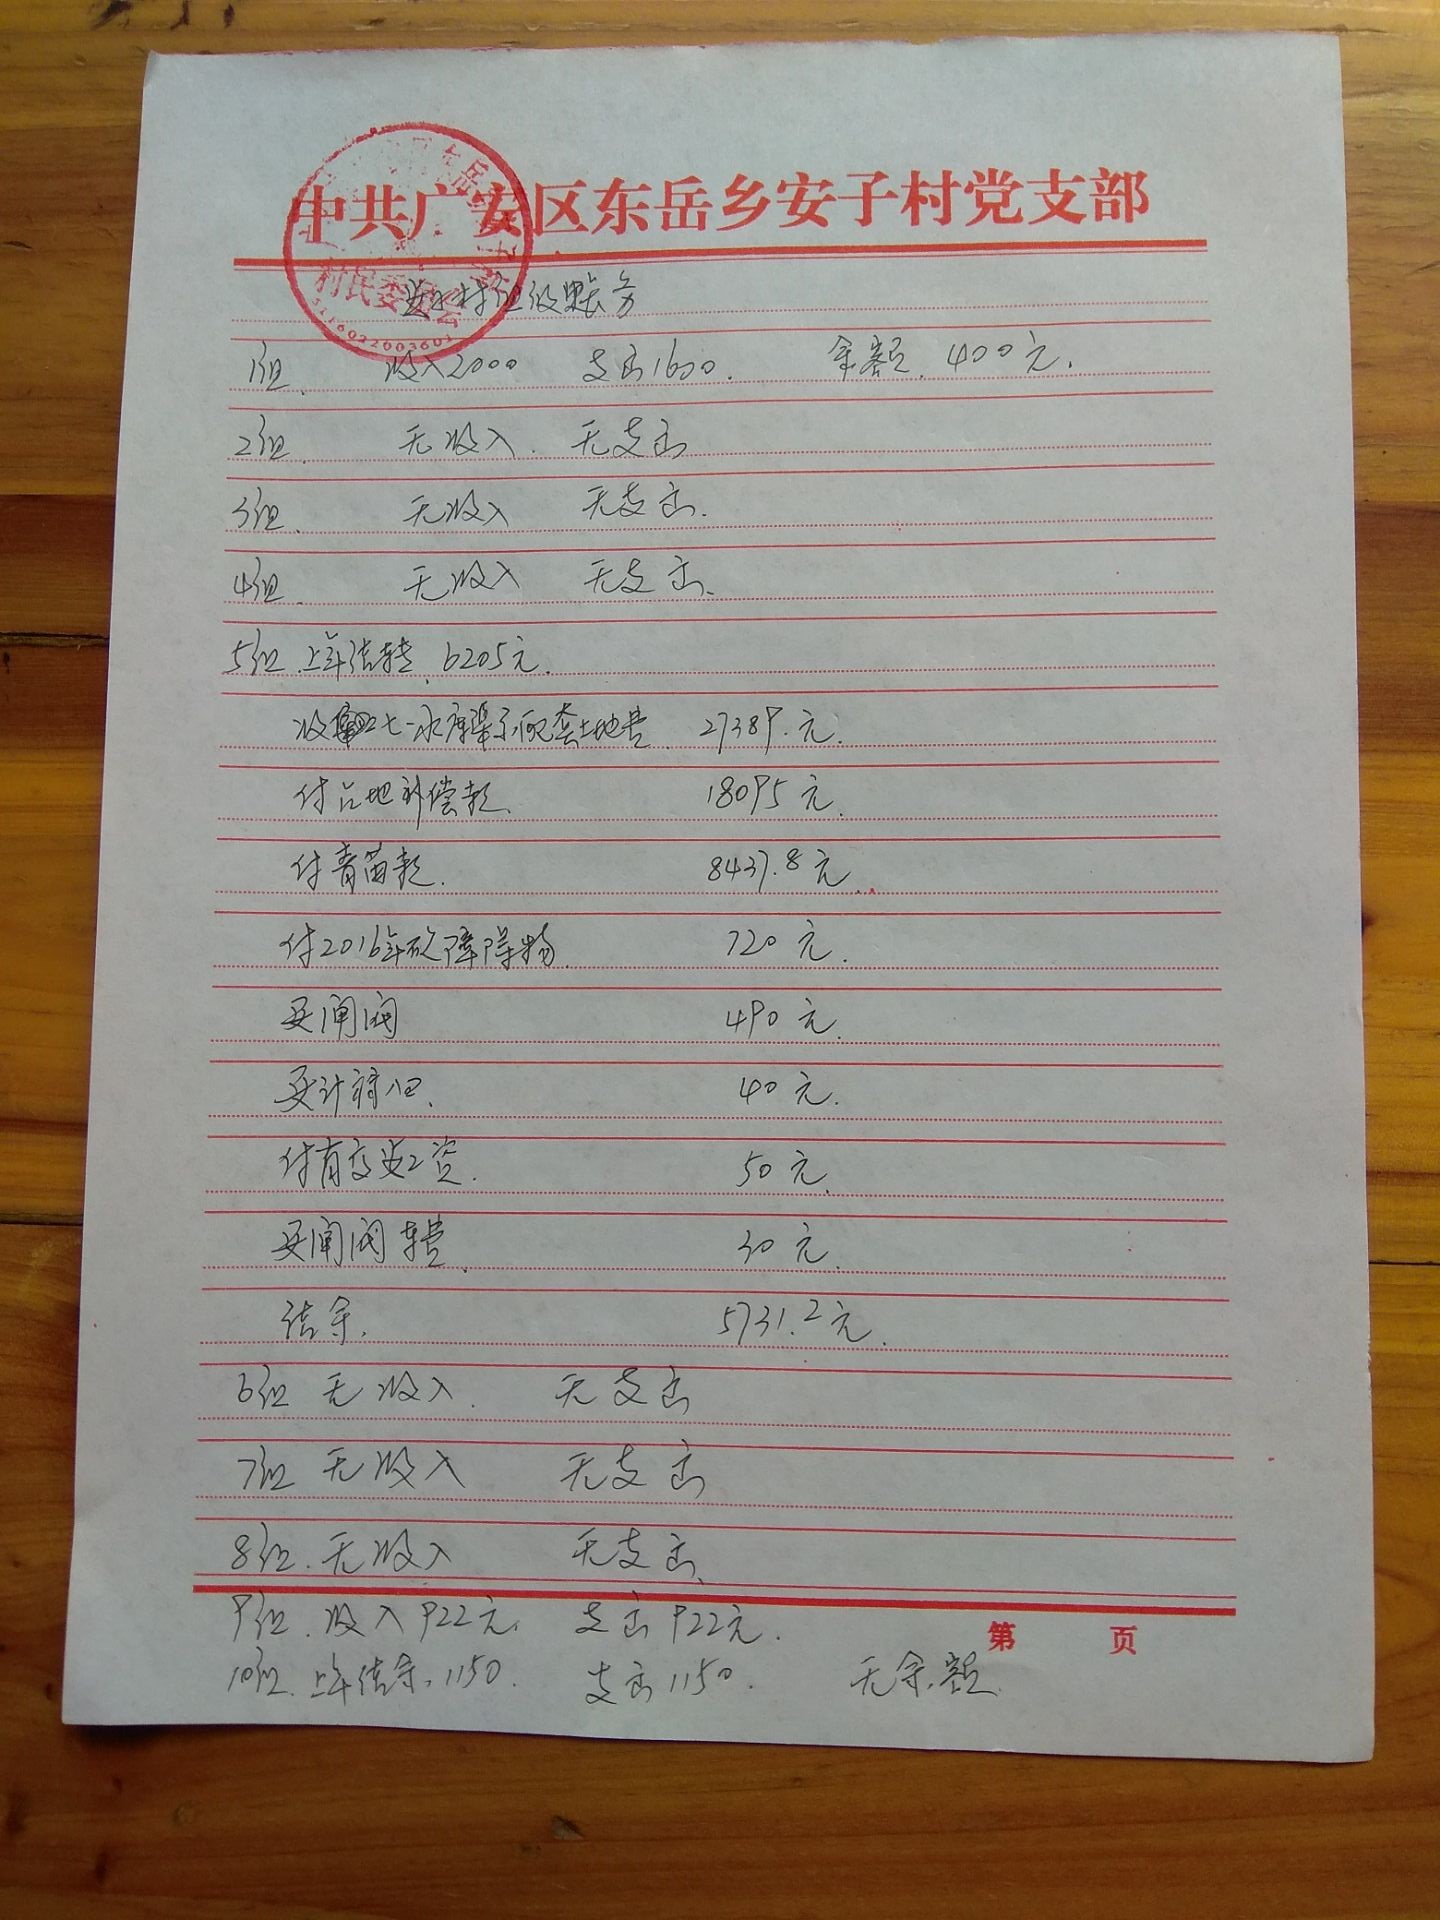 中共广安区东岳乡安子村党支部
村民委员会
安子村组级账务
1组. 收入2000 支出1600. 余额. 400元.
2组. 无收入. 无支出
3组. 无收入 无支出.
4组. 无收入 无支出.
5组 上年结转. 6205元.
收 七一水库渠系配套土地费 27389.元.
付占地补偿款. 18095元.
付青苗款. 8437.8元.
付2016年砍障碍物. 720元.
买闸阀 490元.
买计 40元.
付 工资. 50元.
买闸阀车费. 30元.
结余. 5731.2元.
6组 无收入. 无支出
7组 无收入 无支出
8组. 无收入 无支出.
9组. 收入922元. 支出922元.
第 页
10组. 上年结余. 1150. 支出1150. 无余额.